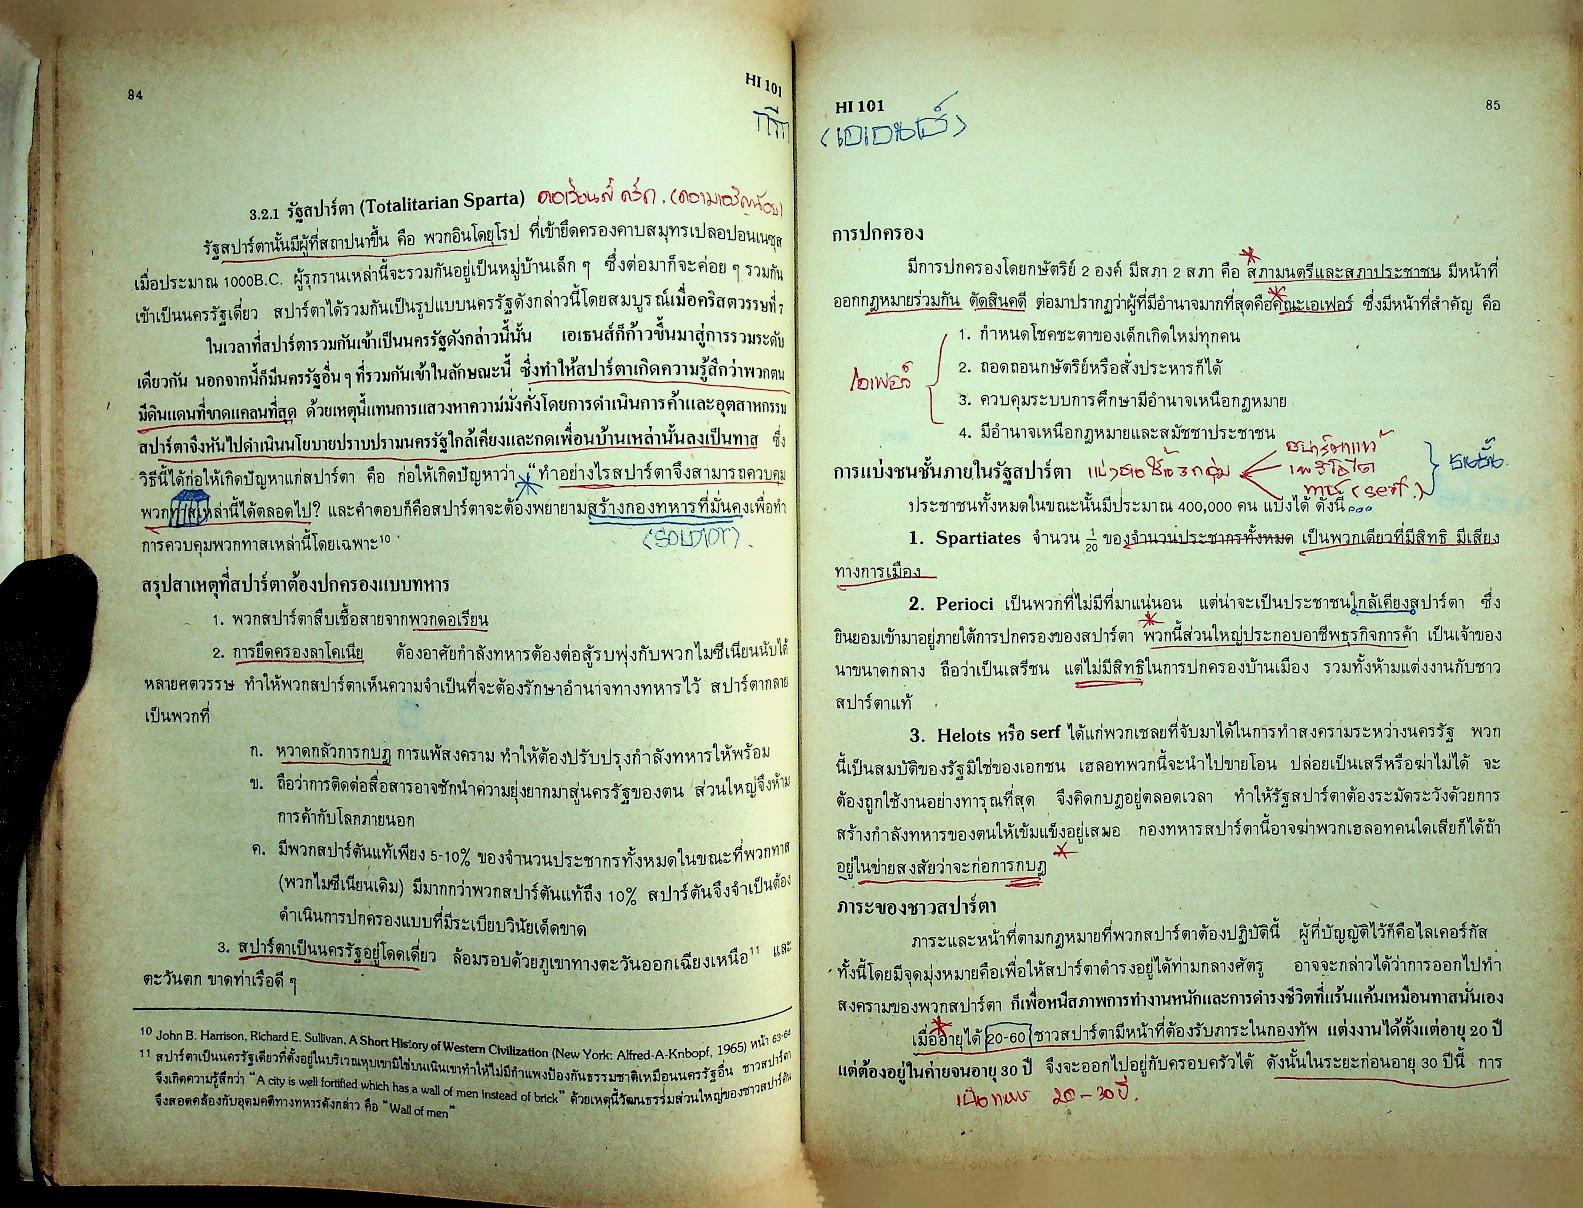 84
HI 101
กรีก
3.2.1 รัฐสปาร์ตา (Totalitarian Sparta) ดอเรียนส์ กรีก. (ความเจริญน้อย)
รัฐสปาร์ตานั้นมีผู้ที่สถาปนาขึ้น คือ พวกอินโดยุโรป ที่เข้ายึดครองคาบสมุทรเปลอปอนเนซุส
เมื่อประมาณ 1000B.C. ผู้รุกรานเหล่านี้จะรวมกันอยู่เป็นหมู่บ้านเล็ก ๆ ซึ่งต่อมาก็จะค่อย ๆ รวมกัน
เข้าเป็นนครรัฐเดี่ยว สปาร์ตาได้รวมกันเป็นรูปแบบนครรัฐดังกล่าวนี้โดยสมบูรณ์เมื่อคริสตวรรษที่ 7
ในเวลาที่สปาร์ตารวมกันเข้าเป็นนครรัฐดังกล่าวนี้นั้น เอเธนส์ก็ก้าวขึ้นมาสู่การรวมระดับ
เดียวกัน นอกจากนี้ก็มีนครรัฐอื่น ๆ ที่รวมกันเข้าในลักษณะนี้ ซึ่งทำให้สปาร์ตาเกิดความรู้สึกว่าพวกตน
มีดินแดนที่ขาดแคลนที่สุด ด้วยเหตุนี้แทนการแสวงหาความมั่งคั่งโดยการดำเนินการค้าและอุตสาหกรรม
สปาร์ตาจึงหันไปดำเนินนโยบายปราบปรามนครรัฐใกล้เคียงและกดเพื่อนบ้านเหล่านั้นลงเป็นทาส ซึ่ง
วิธีนี้ได้ก่อให้เกิดปัญหาแก่สปาร์ตา คือ ก่อให้เกิดปัญหาว่า "ทำอย่างไรสปาร์ตาจึงสามารถควบคุม
พวกทาสเหล่านี้ได้ตลอดไป? และคำตอบก็คือสปาร์ตาจะต้องพยายามสร้างกองทหารที่มั่นคงเพื่อทำ
การควบคุมพวกทาสเหล่านี้โดยเฉพาะ10
สรุปสาเหตุที่สปาร์ตาต้องปกครองแบบทหาร
1. พวกสปาร์ตาสืบเชื้อสายจากพวกดอเรียน
2. การยึดครองลาโคเนีย ต้องอาศัยกำลังทหารต้องต่อสู้รบพุ่งกับพวกไมซีเนียนนับได้
หลายศตวรรษ ทำให้พวกสปาร์ตาเห็นความจำเป็นที่จะต้องรักษาอำนาจทางทหารไว้ สปาร์ตากลาย
เป็นพวกที่
ก. หวาดกลัวการกบฏ การแพ้สงคราม ทำให้ต้องปรับปรุงกำลังทหารให้พร้อม
ข. ถือว่าการติดต่อสื่อสารอาจชักนำความยุ่งยากมาสู่นครรัฐของตน ส่วนใหญ่จึงห้าม
การค้ากับโลกภายนอก
ค. มีพวกสปาร์ตันแท้เพียง 5-10% ของจำนวนประชากรทั้งหมดในขณะที่พวกทาส
(พวกไมซีเนียนเดิม) มีมากกว่าพวกสปาร์ตันแท้ถึง 10% สปาร์ตันจึงจำเป็นต้อง
ดำเนินการปกครองแบบที่มีระเบียบวินัยเด็ดขาด
3. สปาร์ตาเป็นนครรัฐอยู่โดดเดี่ยว ล้อมรอบด้วยภูเขาทางตะวันออกเฉียงเหนือ11 และ
ตะวันตก ขาดท่าเรือดี ๆ
10 John B. Harrison, Richard E. Sullivan, A Short History of Western Civilization (New York: Alfred-A-Knbopf, 1965) หน้า 63-64
11 สปาร์ตาเป็นนครรัฐเดียวที่ตั้งอยู่ในบริเวณหุบเขามิใช่บนเนินเขาทำให้ไม่มีกำแพงป้องกันธรรมชาติเหมือนนครรัฐอื่น ชาวสปาร์ตา
จึงเกิดความรู้สึกว่า "A city is well fortified which has a wall of men instead of brick" ด้วยเหตุนี้วัฒนธรรมส่วนใหญ่ของชาวสปาร์ตัน
จึงสอดคล้องกับอุดมคติทางทหารดังกล่าว คือ "Wall of men"
HI 101
85
(เอเธนส์)
การปกครอง
มีการปกครองโดยกษัตริย์ 2 องค์ มีสภา 2 สภา คือ สภามนตรีและสภาประชาชน มีหน้าที่
ออกกฎหมายร่วมกัน ตัดสินคดี ต่อมาปรากฏว่าผู้ที่มีอำนาจมากที่สุดคือคณะเอเฟอร์ ซึ่งมีหน้าที่สำคัญ คือ
1. กำหนดโชคชะตาของเด็กเกิดใหม่ทุกคน
2. ถอดถอนกษัตริย์หรือสั่งประหารก็ได้
เอเฟอร์
3. ควบคุมระบบการศึกษามีอำนาจเหนือกฎหมาย
4. มีอำนาจเหนือกฎหมายและสมัชชาประชาชน
การแบ่งชนชั้นภายในรัฐสปาร์ตา
สปาร์ตาแท้
เพริโอไต
ทาส (serf.)
ประชาชนทั้งหมดในขณะนั้นมีประมาณ 400,000 คน แบ่งได้ ดังนี้
1. Spartiates จำนวน 1/20 ของจำนวนประชากรทั้งหมด เป็นพวกเดียวที่มีสิทธิ มีเสียง
ทางการเมือง
2. Perioci เป็นพวกที่ไม่มีที่มาแน่นอน แต่น่าจะเป็นประชาชนใกล้เคียงสปาร์ตา ซึ่ง
ยินยอมเข้ามาอยู่ภายใต้การปกครองของสปาร์ตา พวกนี้ส่วนใหญ่ประกอบอาชีพธุรกิจการค้า เป็นเจ้าของ
นาขนาดกลาง ถือว่าเป็นเสรีชน แต่ไม่มีสิทธิในการปกครองบ้านเมือง รวมทั้งห้ามแต่งงานกับชาว
สปาร์ตาแท้
3. Helots หรือ serf ได้แก่พวกเชลยที่จับมาได้ในการทำสงครามระหว่างนครรัฐ พวก
นี้เป็นสมบัติของรัฐมิใช่ของเอกชน เฮลอทพวกนี้จะนำไปขายโอน ปล่อยเป็นเสรีหรือฆ่าไม่ได้ จะ
ต้องถูกใช้งานอย่างทารุณที่สุด จึงคิดกบฏอยู่ตลอดเวลา ทำให้รัฐสปาร์ตาต้องระมัดระวังด้วยการ
สร้างกำลังทหารของตนให้เข้มแข็งอยู่เสมอ กองทหารสปาร์ตานี้อาจฆ่าพวกเฮลอทคนใดเสียก็ได้ถ้า
อยู่ในข่ายสงสัยว่าจะก่อการกบฏ
ภาระของชาวสปาร์ตา
ภาระและหน้าที่ตามกฎหมายที่พวกสปาร์ตาต้องปฏิบัตินี้ ผู้ที่บัญญัติไว้ก็คือไลเคอร์กัส
ทั้งนี้โดยมีจุดมุ่งหมายคือเพื่อให้สปาร์ตาดำรงอยู่ได้ท่ามกลางศัตรู อาจจะกล่าวได้ว่าการออกไปทำ
สงครามของพวกสปาร์ตา ก็เพื่อหนีสภาพการทำงานหนักและการดำรงชีวิตที่แร้นแค้นเหมือนทาสนั่นเอง
เมื่ออายุได้ 20-60 ชาวสปาร์ตามีหน้าที่ต้องรับภาระในกองทัพ แต่งงานได้ตั้งแต่อายุ 20 ปี
แต่ต้องอยู่ในค่ายจนอายุ 30 ปี จึงจะออกไปอยู่กับครอบครัวได้ ดังนั้นในระยะก่อนอายุ 30 ปีนี้ การ
เป็นทหาร 20-30 ปี.